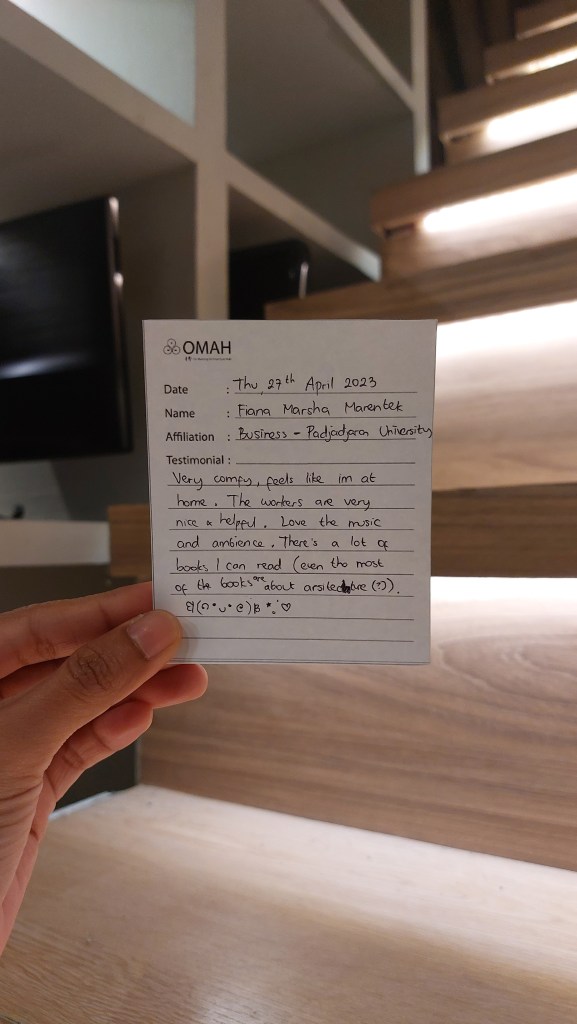 OMAH
Date : Thu, 27th April 2023
Name : Fiana Marsha Marentek
Affiliation : Business - Padjadjara University
Testimonial :
Very comfy, feels like im at
home. The workers are very
nice & helpful. Love the music
and ambience. There's a lot of
books I can read (even tho most
of the books are about arsitecture (?)).